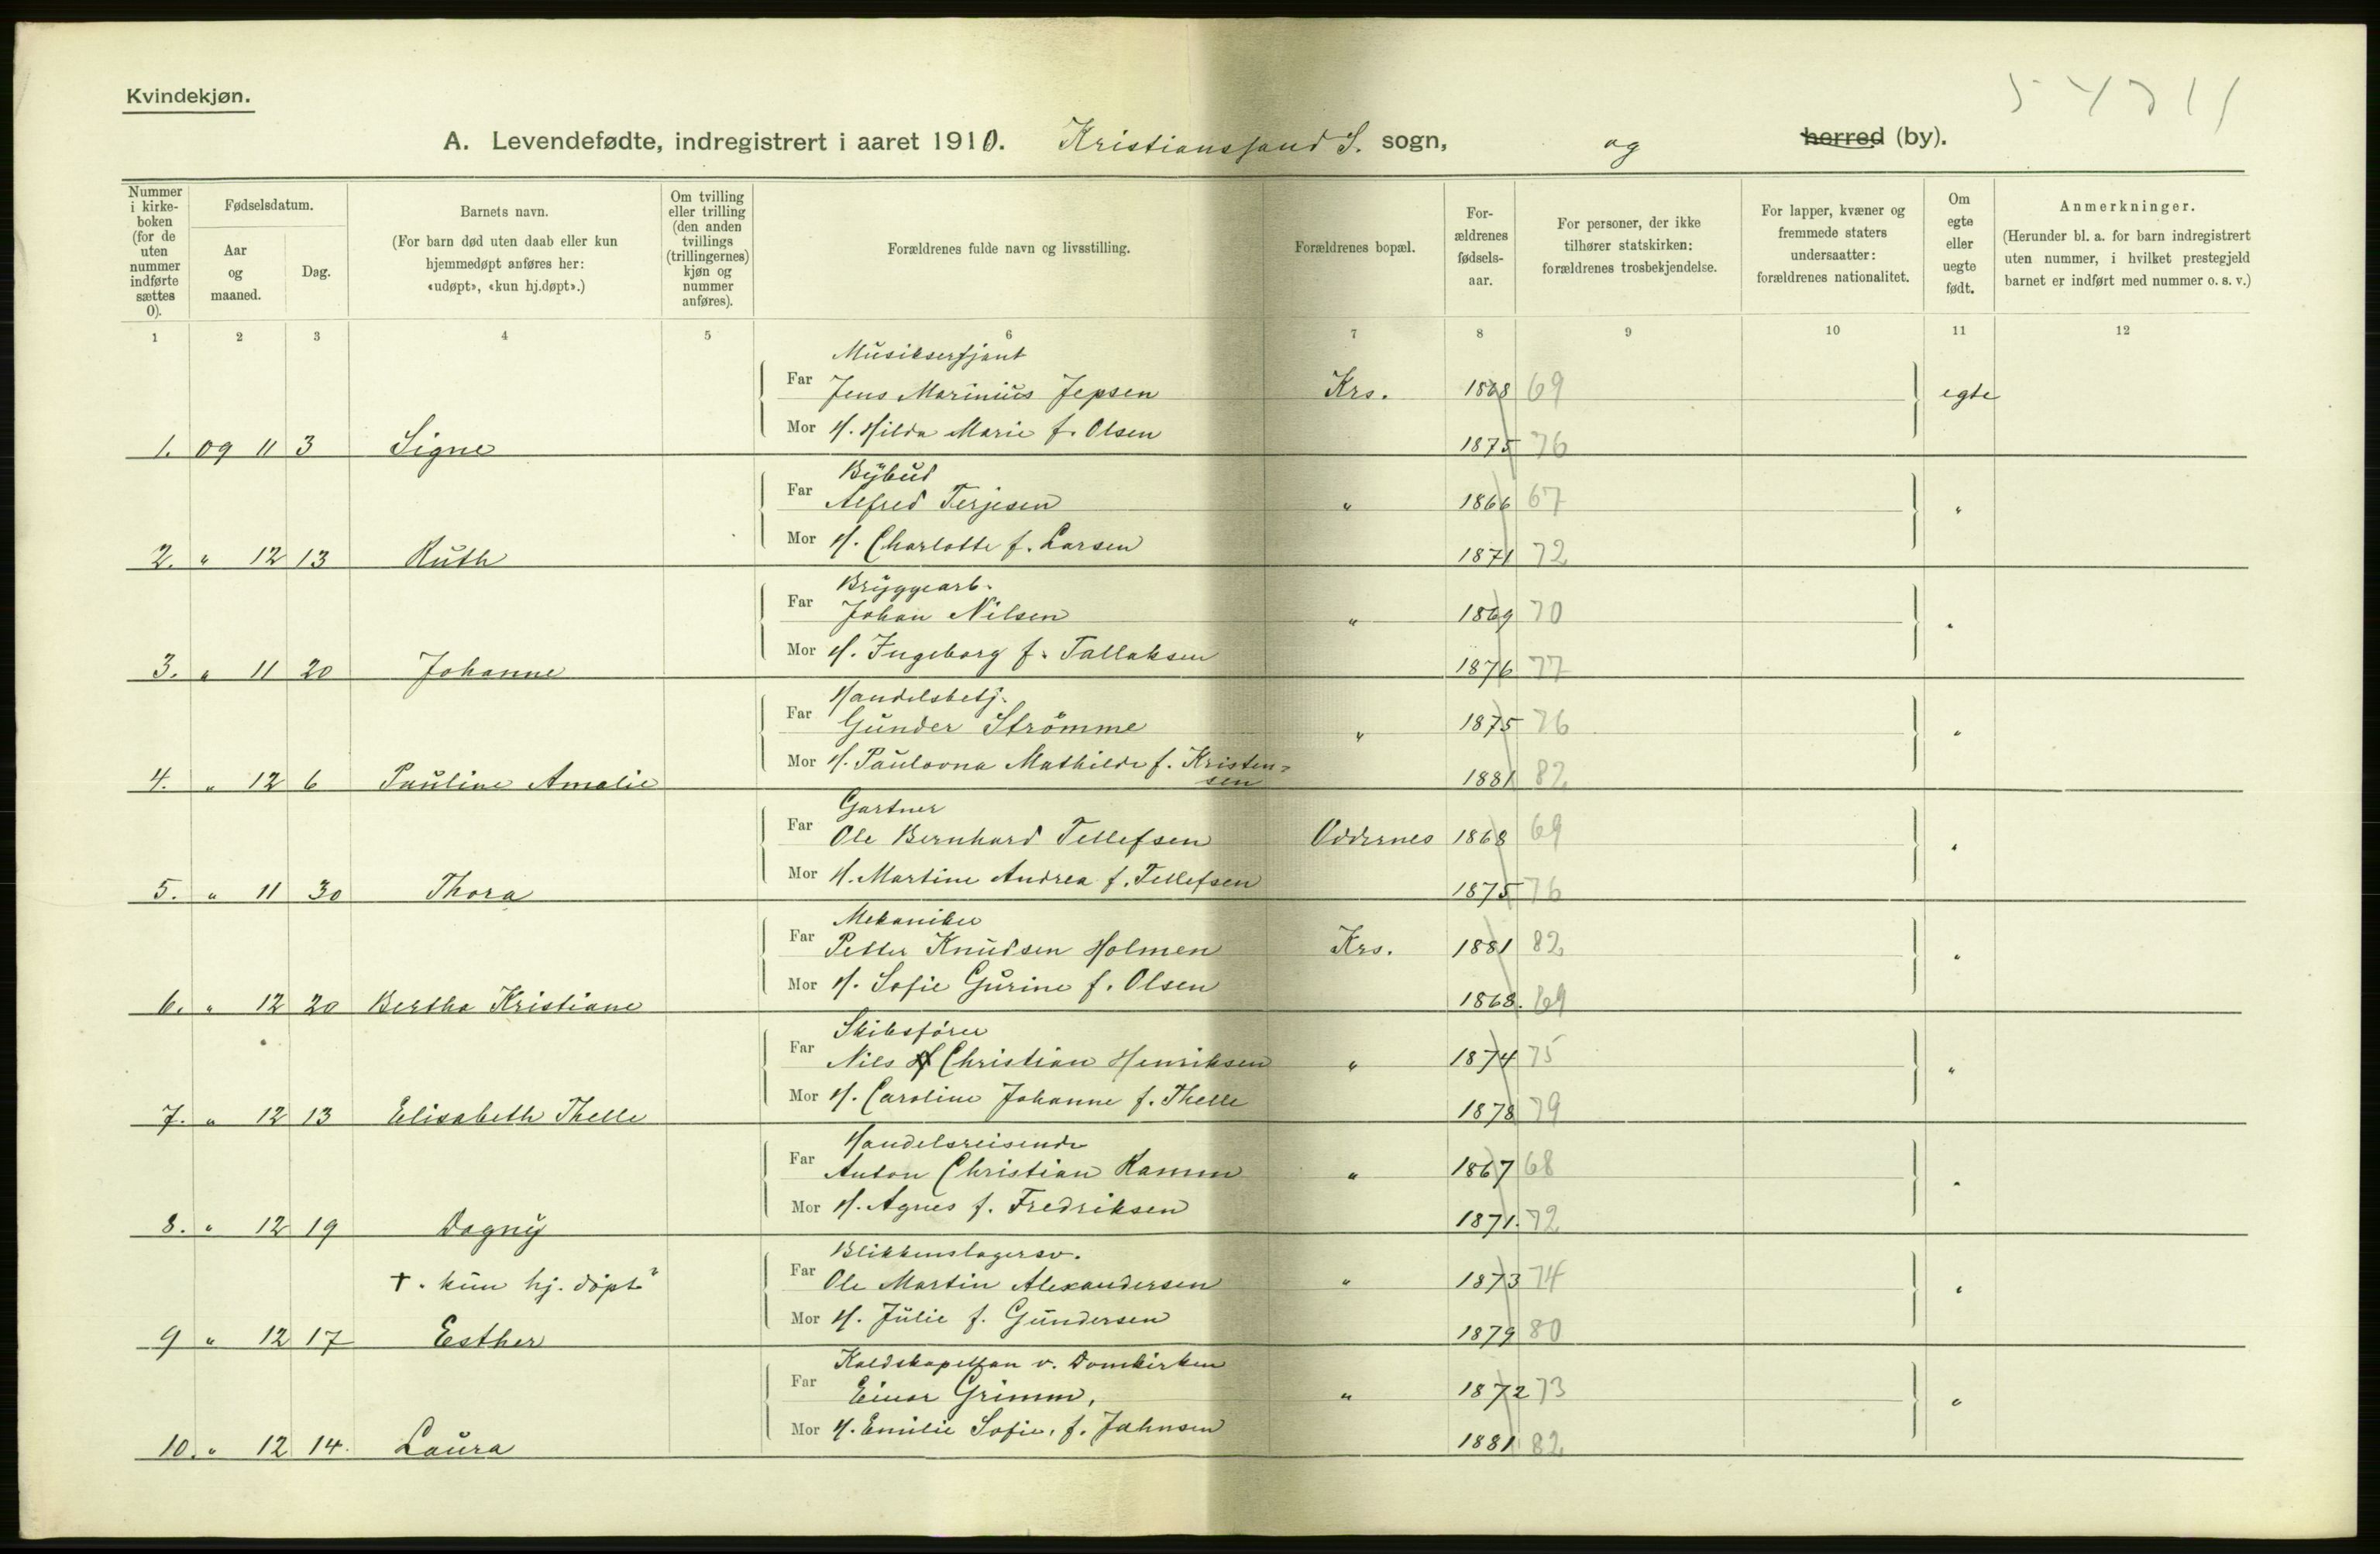 Kvindekjøn.
A. Levendefødte, indregistrert i aaret 1910. Kristianssand S. sogn, og herred (by).
Nummer i kirke-boken (for de uten nummer indførte sættes 0).
Fødselsdatum.
Aar og maaned.
Dag.
Barnets navn.
(For barn død uten daab eller kun hjemmedøpt anføres her: «udøpt», «kun hj.døpt».)
Om tvilling eller trilling (den anden tvillings (trillingernes) kjøn og nummer anføres).
Forældrenes fulde navn og livsstilling.
Forældrenes bopæl.
For-ældrenes fødsels-aar.
For personer, der ikke tilhører statskirken: forældrenes trosbekjendelse.
For lapper, kvæner og fremmede staters undersaatter: forældrenes nationalitet.
Om egte eller uegte født.
Anmerkninger.
(Herunder bl. a. for barn indregistrert uten nummer, i hvilket prestegjeld barnet er indført med nummer o. s. v.)
1 2 3 4 5 6 7 8 9 10 11 12
Musiksersjant
Far Jens Marinius Jepsen Krs. 1868 69 egte
Mor H. Hilda Marie f. Olsen 1875 76
1. 09 11 3 Signe
Bybud
Far Alfred Terjesen " 1866 67 "
Mor H. Charlotte f. Larsen 1871 72
2. " 12 13 Ruth
Bryggearb.
Far Johan Nilsen " 1869 70 "
Mor H. Ingeborg f. Tallaksen 1876 77
3. " 11 20 Johanne
Handelsbetj.
Far Gunder Strømme " 1875 76 "
Mor H. Paulovna Mathilde f. Kristen-
sen 1881 82
4. " 12 6 Pauline Amalie
Gartner
Far Ole Bernhard Tellefsen Oddernes 1868 69 "
Mor H. Martine Andrea f. Tellefsen 1875 76
5. " 11 30 Thora
Mekaniker
Far Petter Knudsen Holmen Krs. 1881 82 "
Mor H. Sofie Gurine f. Olsen 1868. 69
6. " 12 20 Bertha Kristiane
Skibsfører
Far Nils Christian Henriksen " 1874 75 "
Mor H. Caroline Johanne f. Thelle 1878 79
7. " 12 13 Elisabeth Thelle
Handelsreisende
Far Anton Christian Ramm " 1867 68 "
Mor H. Agnes f. Fredriksen 1871. 72
8. " 12 19 Dagny
Blikkenslagersv.
† "kun hj. døpt" Far Ole Martin Alexandersen " 1873 74 "
Mor H. Julie f. Gundersen 1879 80
9 " 12 17 Esther
Kaldskapellan v. Domkirken
Far Einar Grimm, " 1872 73 "
Mor H. Emilie Sofie, f. Jahnsen 1881 82
10. " 12 14. Laura